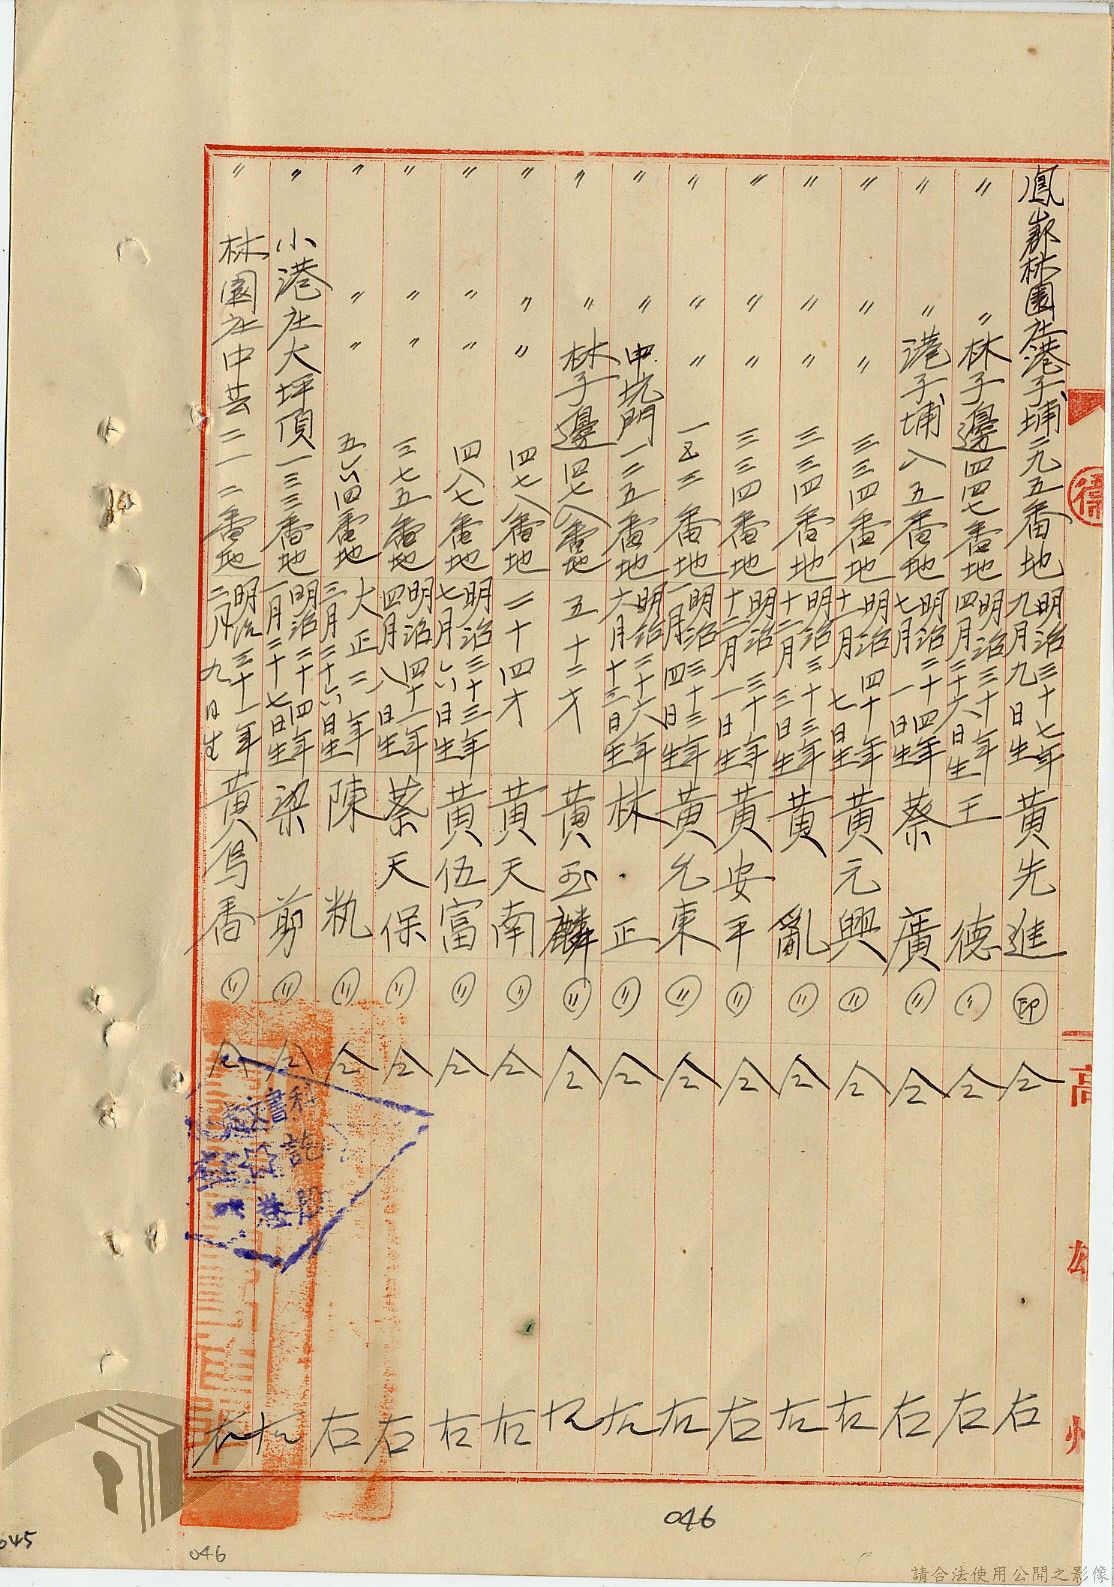 鳳山郡林園庄港子埔二九五番地 明治三十七年九月九日生 黃先進 ㊞ 仝 右
〃 〃 林子邊四四七番地 明治三十年四月二十六日生 王德 〃 仝 右
〃 〃 港子埔八五番地 明治二十四年七月一日生 蔡廣 〃 仝 右
〃 〃 〃 三三四番地 明治四十年十一月七日生 黃元興 〃 仝 右
〃 〃 〃 三三四番地 明治三十三年十二月三日生 黃亂 〃 仝 右
〃 〃 〃 三三四番地 明治三十年十二月一日生 黃安平 〃 仝 右
〃 〃 〃 一五三番地 明治三十三年一月四日生 黃允東 〃 仝 右
〃 〃 中坑門一二五番地 明治二十六年六月十三日生 林正 〃 仝 右
〃 〃 林子邊四七八番地 五十二才 黃玉麟 〃 仝 右
〃 〃 〃 四七八番地 二十四才 黃天南 〃 仝 右
〃 〃 〃 四八七番地 明治三十三年七月六日生 黃伍富 〃 仝 右
〃 〃 〃 三七五番地 明治四十一年四月八日生 蔡天保 〃 仝 右
〃 〃 〃 五六四番地 大正二年三月二十六日生 陳 〃 仝 右
〃 小港庄大坪頂一三三番地 明治二十四年一月二十七日生 梁剪 〃 仝 右
〃 林園庄中芸二一二番地 明治三十一年二月九日生 黃烏香 〃 仝 右
高雄州
文書科
046
045
046
請合法使用公開之影像